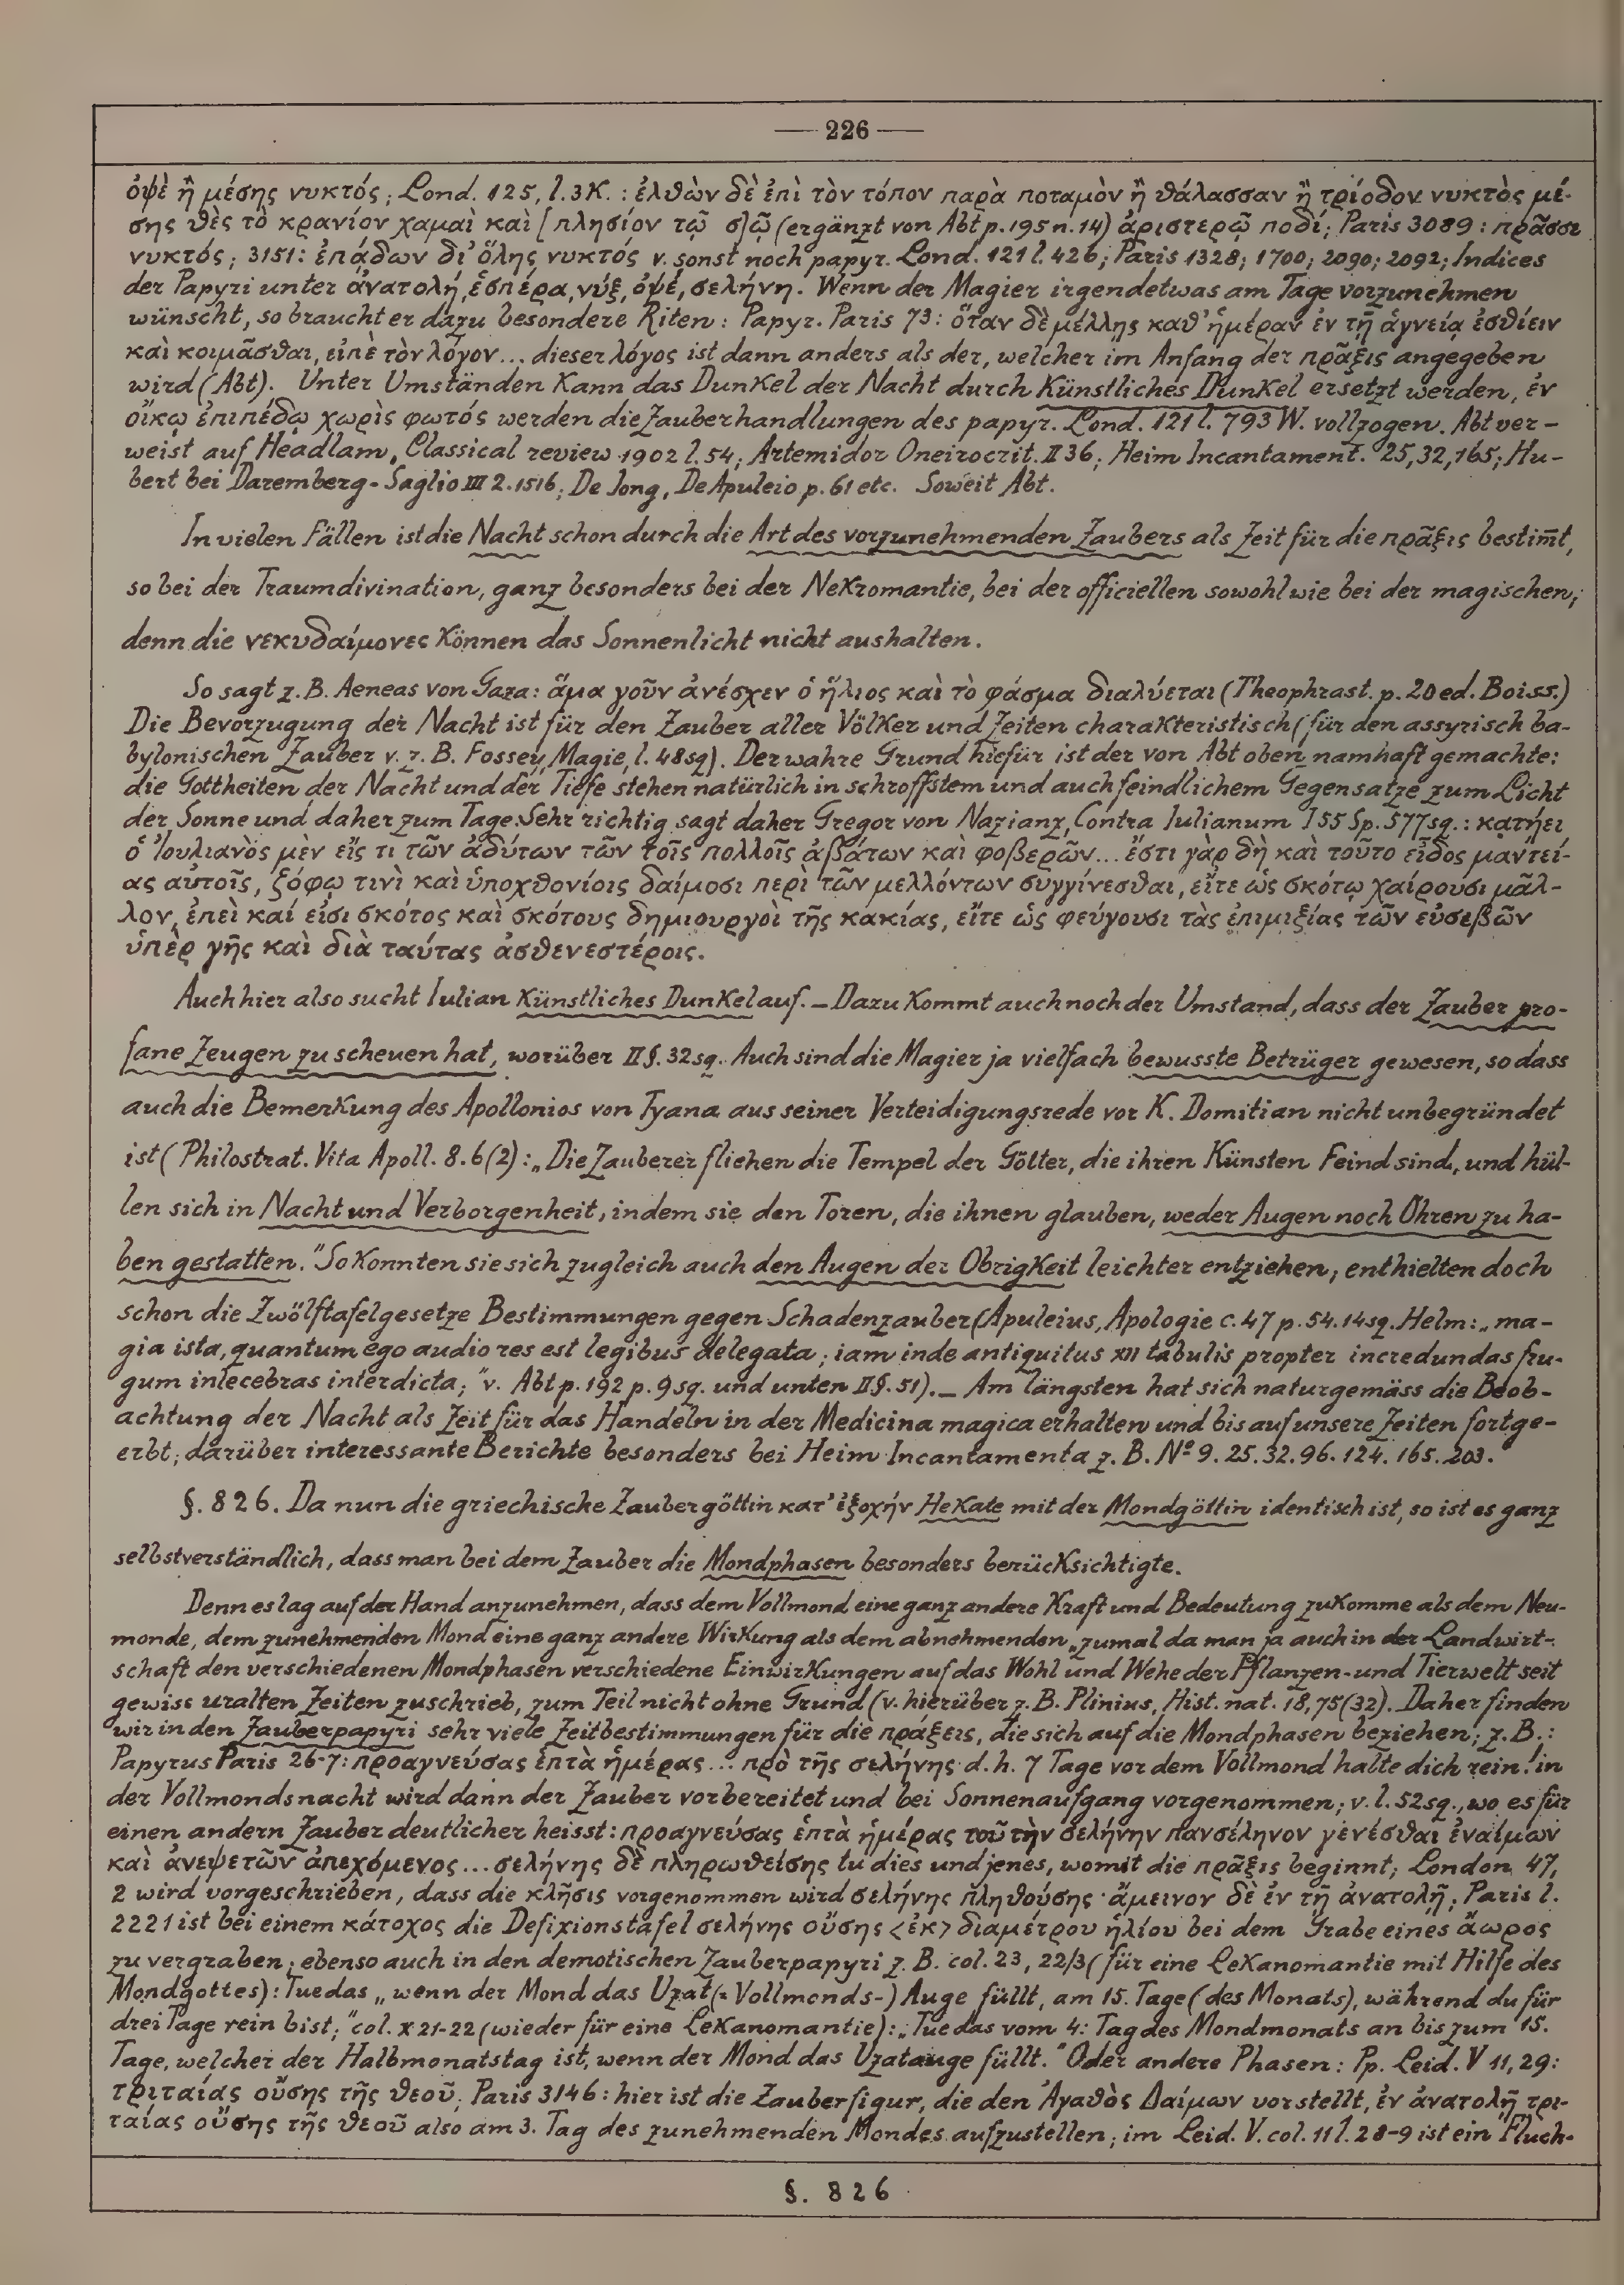 — 226 —
ὀψὲ ἢ μέσης νυκτός; Lond. 125, l.3K.: ἐλθὼν δὲ ἐπὶ τὸν τόπον παρὰ ποταμὸν ἢ θάλασσαν ἢ τρίοδον νυκτὸς μέ-
σης θὲς τὸ κρανίον χαμαὶ καὶ [πλησίον τῷ σ]ῷ (ergänzt von Abt p.195 n.14) ἀριστερῷ ποδί; Paris 3089: πρᾶσσε
νυκτός; 3151: ἐπᾴδων δι' ὅλης νυκτός v. sonst noch papyr. Lond. 121 l. 426; Paris 1328; 1700; 2090; 2092; Indices
der Papyri unter ἀνατολή, ἑσπέρα, νύξ, ὀψέ, σελήνη. Wenn der Magier irgendetwas am Tage vorzunehmen
wünscht, so braucht er dazu besondere Riten: Papyr. Paris 73: ὅταν δὲ μέλλῃς καθ' ἡμέραν ἐν τῇ ἁγνείᾳ ἐσθίειν
καὶ κοιμᾶσθαι, εἰπὲ τὸν λόγον... dieser λόγος ist dann anders als der, welcher im Anfang der πρᾶξις angegeben
wird (Abt). Unter Umständen kann das Dunkel der Nacht durch künstliches Dunkel ersetzt werden, ἐν
οἴκῳ ἐπιπέδῳ χωρὶς φωτός werden die Zauberhandlungen des papyr. Lond. 121 l. 793 W. vollzogen. Abt ver-
weist auf Headlam, Classical review 1902 l.54; Artemidor Oneirocrit. II 36; Heim Incantament. 25,32,165; Hu-
bert bei Daremberg-Saglio III 2.1516; De Jong, De Apuleio p. 61 etc. Soweit Abt.
In vielen Fällen ist die Nacht schon durch die Art des vorzunehmenden Zaubers als Zeit für die πρᾶξις bestim̄t,
so bei der Traumdivination, ganz besonders bei der Nekromantie, bei der officiellen sowohl wie bei der magischen;
denn die νεκυδαίμονες können das Sonnenlicht nicht aushalten.
So sagt z.B. Aeneas von Gaza: ἅμα γοῦν ἀνέσχεν ὁ ἥλιος καὶ τὸ φάσμα διαλύεται (Theophrast. p. 20 ed. Boiss.)
Die Bevorzugung der Nacht ist für den Zauber aller Völker und Zeiten charakteristisch (für den assyrisch ba-
bylonischen Zauber v. z. B. Fossey, Magie, l. 48sq). Der wahre Grund hiefür ist der von Abt oben namhaft gemachte:
die Gottheiten der Nacht und der Tiefe stehen natürlich in schroffstem und auch feindlichem Gegensatze zum Licht
der Sonne und daher zum Tage. Sehr richtig sagt daher Gregor von Nazianz, Contra Iulianum I 55 Sp. 577sq.: κατῄει
ὁ Ἰουλιανὸς μὲν εἴς τι τῶν ἀδύτων τῶν τοῖς πολλοῖς ἀβάτων καὶ φοβερῶν... ἔστι γὰρ δὴ καὶ τοῦτο εἶδος μαντεί-
ας αὐτοῖς, ζόφῳ τινὶ καὶ ὑποχθονίοις δαίμοσι περὶ τῶν μελλόντων συγγίνεσθαι, εἴτε ὡς σκότῳ χαίρουσι μᾶλ-
λον, ἐπεὶ καί εἰσι σκότος καὶ σκότους δημιουργοὶ τῆς κακίας, εἴτε ὡς φεύγουσι τὰς ἐπιμιξίας τῶν εὐσεβῶν
ὑπὲρ γῆς καὶ διὰ ταύτας ἀσθενεστέροις.
Auch hier also sucht Iulian künstliches Dunkel auf. — Dazu kommt auch noch der Umstand, dass der Zauber pro-
fane Zeugen zu scheuen hat, worüber II §. 32sq. Auch sind die Magier ja vielfach bewusste Betrüger gewesen, so dass
auch die Bemerkung des Apollonios von Tyana aus seiner Verteidigungsrede vor K. Domitian nicht unbegründet
ist (Philostrat. Vita Apoll. 8.6 (2): „Die Zauberer fliehen die Tempel der Götter, die ihren Künsten Feind sind, und hül-
len sich in Nacht und Verborgenheit, indem sie den Toren, die ihnen glauben, weder Augen noch Ohren zu ha-
ben gestatten." So konnten sie sich zugleich auch den Augen der Obrigkeit leichter entziehen; enthielten doch
schon die Zwölftafelgesetze Bestimmungen gegen Schadenzauber (Apuleius, Apologie c. 47 p. 54.14sq. Helm: „ma-
gia ista, quantum ego audio res est legibus delegata; iam inde antiquitus XII tabulis propter incredundas fru-
gum inlecebras interdicta;" v. Abt p. 192 p. 9sq. und unten II §. 51). — Am längsten hat sich naturgemäss die Beob-
achtung der Nacht als Zeit für das Handeln in der Medicina magica erhalten und bis auf unsere Zeiten fortge-
erbt; darüber interessante Berichte besonders bei Heim Incantamenta z. B. N° 9. 25. 32. 96. 124. 165. 203.
§. 826. Da nun die griechische Zaubergöttin κατ' ἐξοχήν Hekate mit der Mondgöttin identisch ist, so ist es ganz
selbstverständlich, dass man bei dem Zauber die Mondphasen besonders berücksichtigte.
Denn es lag auf der Hand anzunehmen, dass dem Vollmond eine ganz andere Kraft und Bedeutung zukomme als dem Neu-
monde, dem zunehmenden Mond eine ganz andere Wirkung als dem abnehmenden, zumal da man ja auch in der Landwirt-
schaft den verschiedenen Mondphasen verschiedene Einwirkungen auf das Wohl und Wehe der Pflanzen- und Tierwelt seit
gewiss uralten Zeiten zuschrieb, zum Teil nicht ohne Grund (v. hierüber z. B. Plinius, Hist. nat. 18,75 (32). Daher finden
wir in den Zauberpapyri sehr viele Zeitbestimmungen für die πράξεις, die sich auf die Mondphasen beziehen; z.B.:
Papyrus Paris 26-7: προαγνεύσας ἑπτὰ ἡμέρας... πρὸ τῆς σελήνης d.h. 7 Tage vor dem Vollmond halte dich rein! in
der Vollmondsnacht wird dann der Zauber vorbereitet und bei Sonnenaufgang vorgenommen; v. l. 52sq., wo es für
einen andern Zauber deutlicher heisst: προαγνεύσας ἑπτὰ ἡμέρας τοῦ τὴν σελήνην πανσέληνον γενέσθαι ἐναίμων
καὶ ἀνεψετῶν ἀπεχόμενος... σελήνης δὲ πληρωθείσης tu dies und jenes, womit die πρᾶξις beginnt; London 47,
2 wird vorgeschrieben, dass die κλῆσις vorgenommen wird σελήνης πληθούσης· ἄμεινον δὲ ἐν τῇ ἀνατολῇ; Paris l.
2221 ist bei einem κάτοχος die Defixionstafel σελήνης οὔσης <ἐκ> διαμέτρου ἡλίου bei dem Grabe eines ἄωρος
zu vergraben; ebenso auch in den demotischen Zauberpapyri z. B. col. 23, 22/3 (für eine Lekanomantie mit Hilfe des
Mondgottes): Tue das „wenn der Mond das Uzat (= Vollmonds-) Auge füllt, am 15. Tage (des Monats), während du für
drei Tage rein bist;" col. X 21-22 (wieder für eine Lekanomantie): „Tue das vom 4. Tag des Mondmonats an bis zum 15.
Tage, welcher der Halbmonatstag ist, wenn der Mond das Uzatauge füllt." Oder andere Phasen: Pp. Leid. V 11, 29:
τριταίας οὔσης τῆς θεοῦ; Paris 3146: hier ist die Zauberfigur, die den Ἀγαθὸς Δαίμων vorstellt, ἐν ἀνατολῇ τρι-
ταίας οὔσης τῆς θεοῦ also am 3. Tag des zunehmenden Mondes aufzustellen; im Leid. V. col. 11 l. 28-9 ist ein Fluch-
§. 826